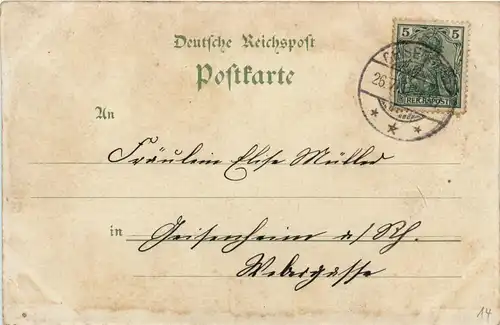 Deutsche Reichspost
Postkarte
5 5
REICHSPOST
26.
An
Fräulein Elise Müller
in Geisenheim a/Rh.
Webergasse
14